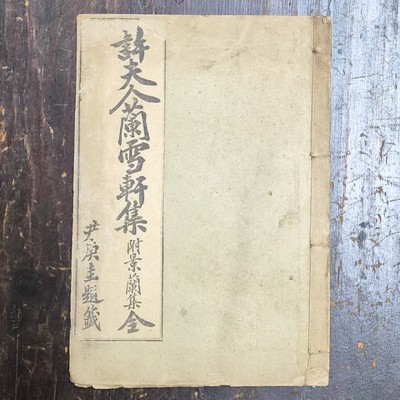 許夫人蘭雪軒集附景蘭集全
尹庚圭題籤